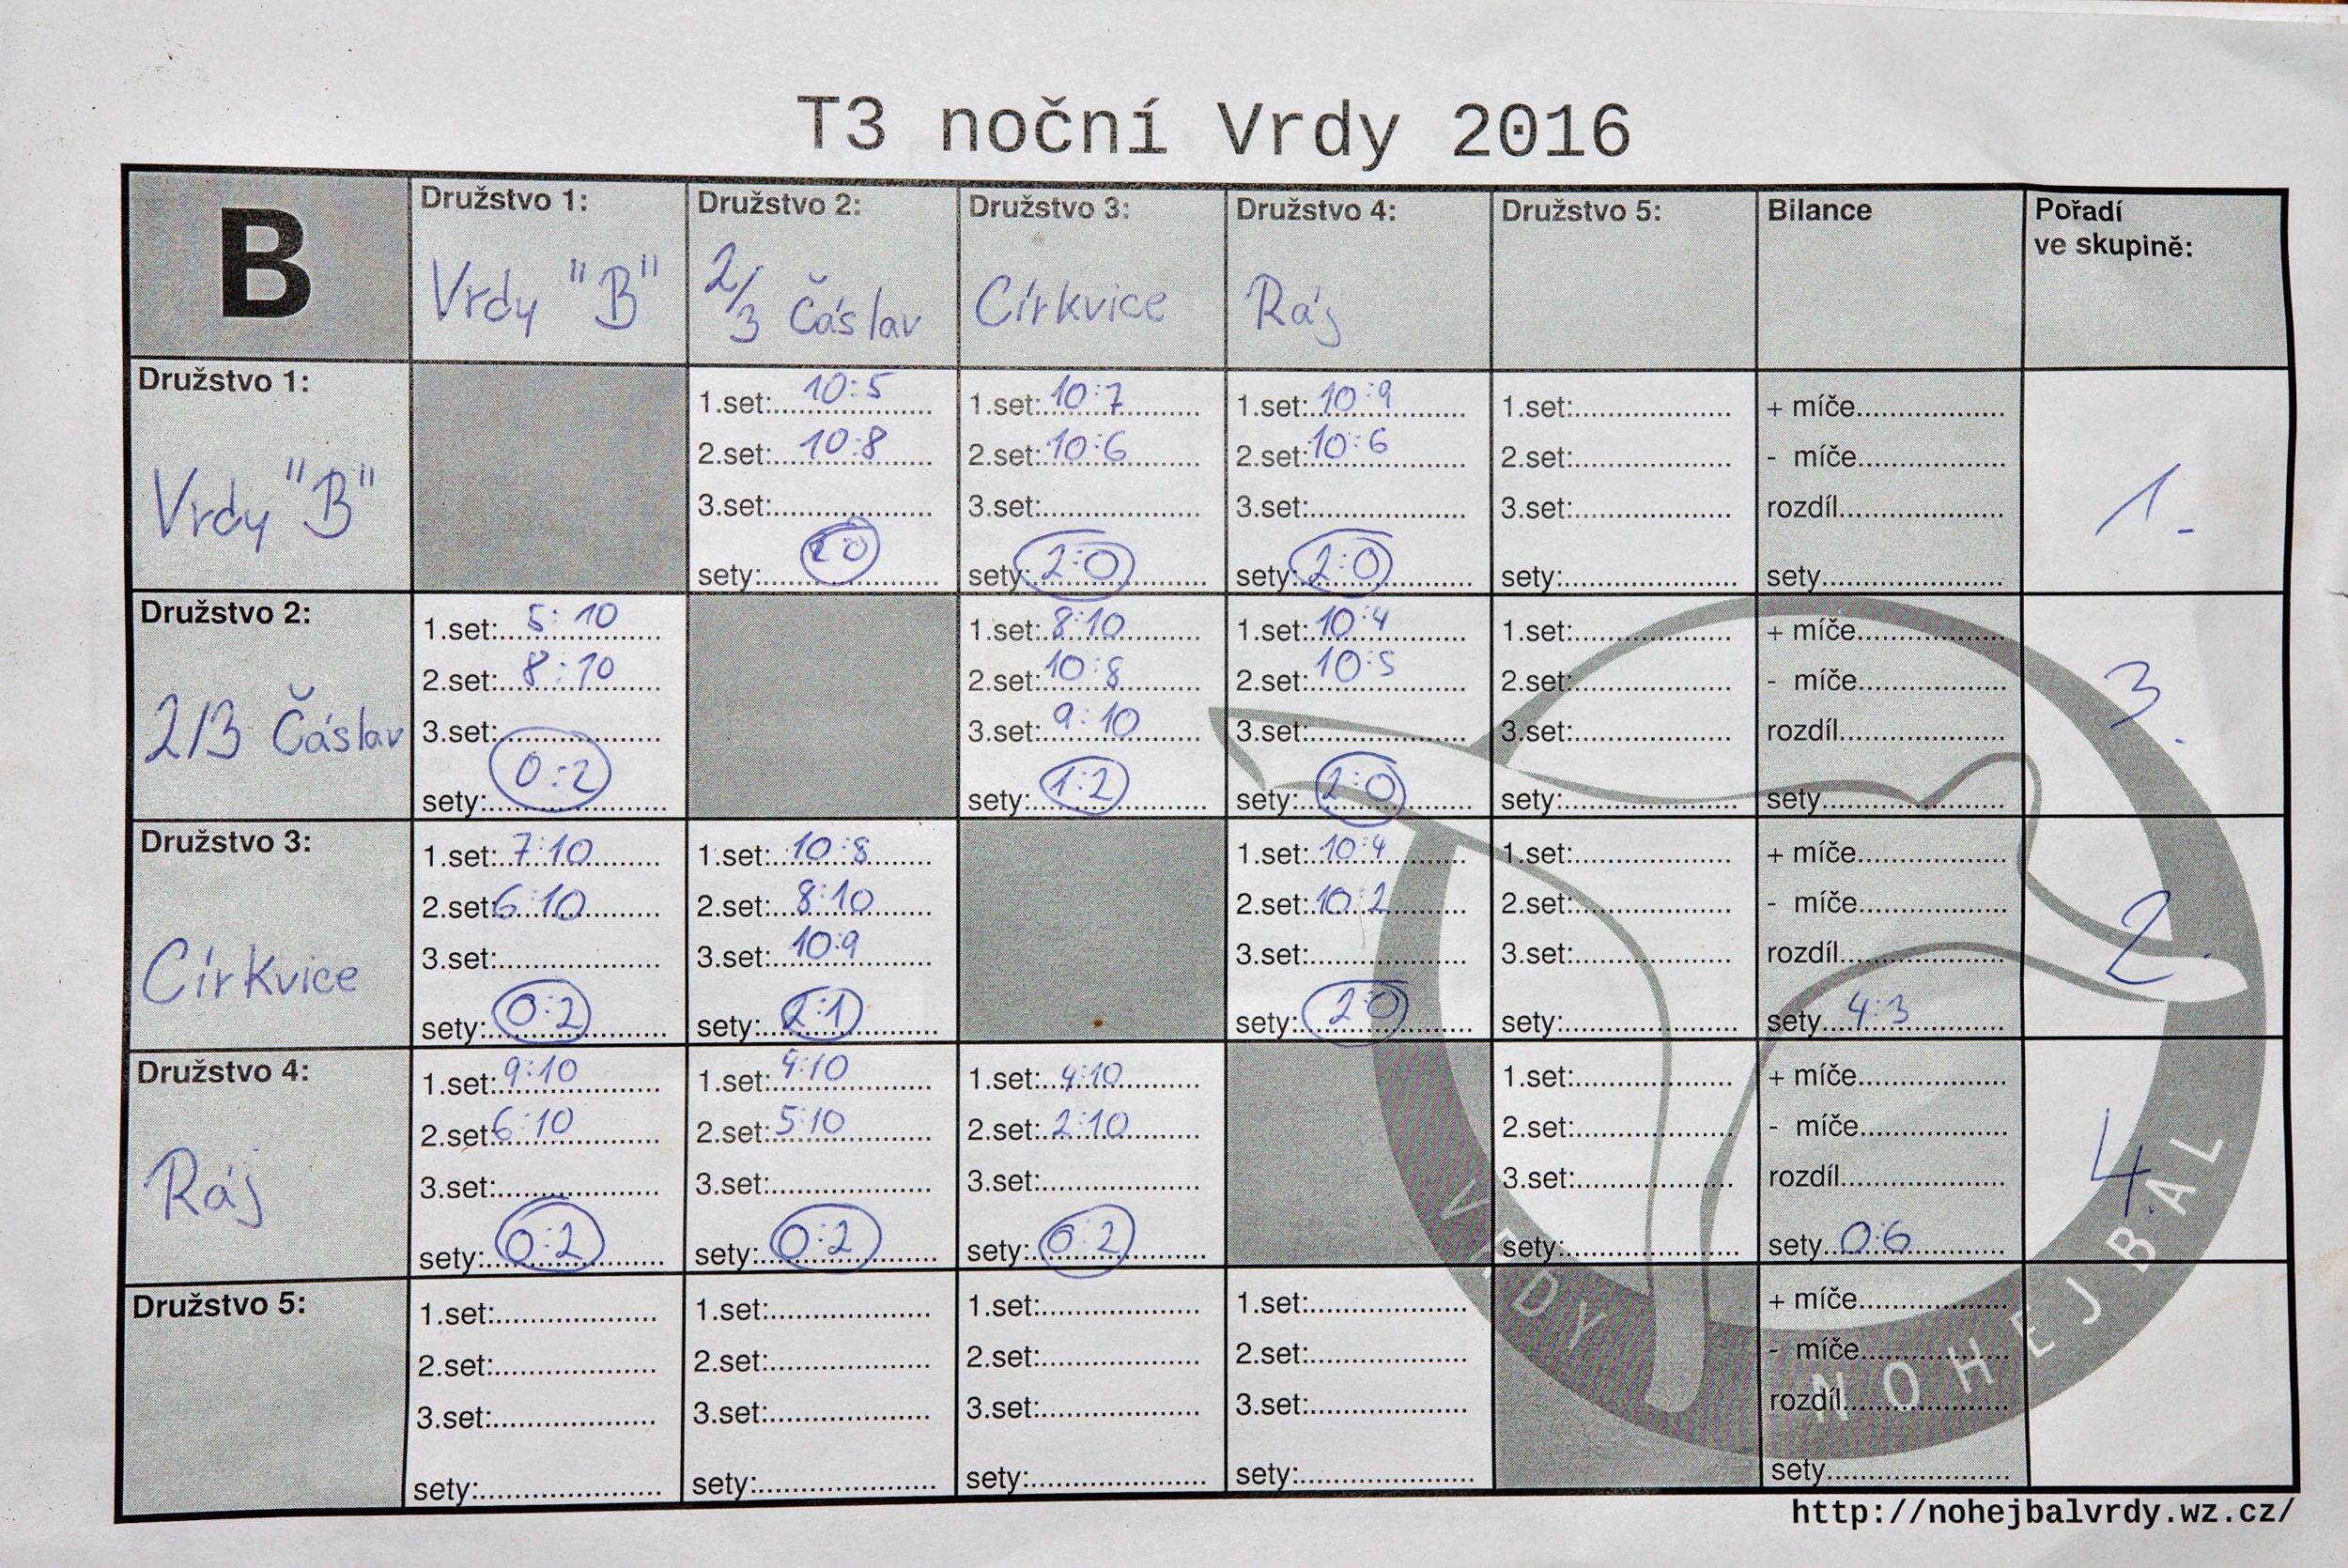 T3 noční Vrdy 2016
B
Družstvo 1:
Vrdy "B"
Družstvo 2:
2/3 Čáslav
Družstvo 3:
Církvice
Družstvo 4:
Ráj
Družstvo 5:
Bilance
Pořadí
ve skupině:
Družstvo 1:
Vrdy "B"
1.set:10:5
2.set:10:8
3.set:
sety:2:0
1.set:10:7
2.set:10:6
3.set:
sety:2:0
1.set:10:9
2.set:10:6
3.set:
sety:2:0
1.set:
2.set:
3.set:
sety:
+ míče
- míče
rozdíl
sety
1.
Družstvo 2:
2/3 Čáslav
1.set:5:10
2.set:8:10
3.set:
sety:0:2
1.set:8:10
2.set:10:8
3.set:9:10
sety:1:2
1.set:10:4
2.set:10:5
3.set:
sety:2:0
1.set:
2.set:
3.set:
sety:
+ míče
- míče
rozdíl
sety
3.
Družstvo 3:
Církvice
1.set:7:10
2.set:6:10
3.set:
sety:0:2
1.set:10:8
2.set:8:10
3.set:10:9
sety:2:1
1.set:10:4
2.set:10:2
3.set:
sety:2:0
1.set:
2.set:
3.set:
sety:
+ míče
- míče
rozdíl
sety 4:3
2.
Družstvo 4:
Ráj
1.set:9:10
2.set:6:10
3.set:
sety:0:2
1.set:4:10
2.set:5:10
3.set:
sety:0:2
1.set:4:10
2.set:2:10
3.set:
sety:0:2
1.set:
2.set:
3.set:
sety:
+ míče
- míče
rozdíl
sety 0:6
4.
Družstvo 5:
1.set:
2.set:
3.set:
sety:
1.set:
2.set:
3.set:
sety:
1.set:
2.set:
3.set:
sety:
1.set:
2.set:
3.set:
sety:
+ míče
- míče
rozdíl
sety
VRDY NOHEJBAL
http://nohejbalvrdy.wz.cz/